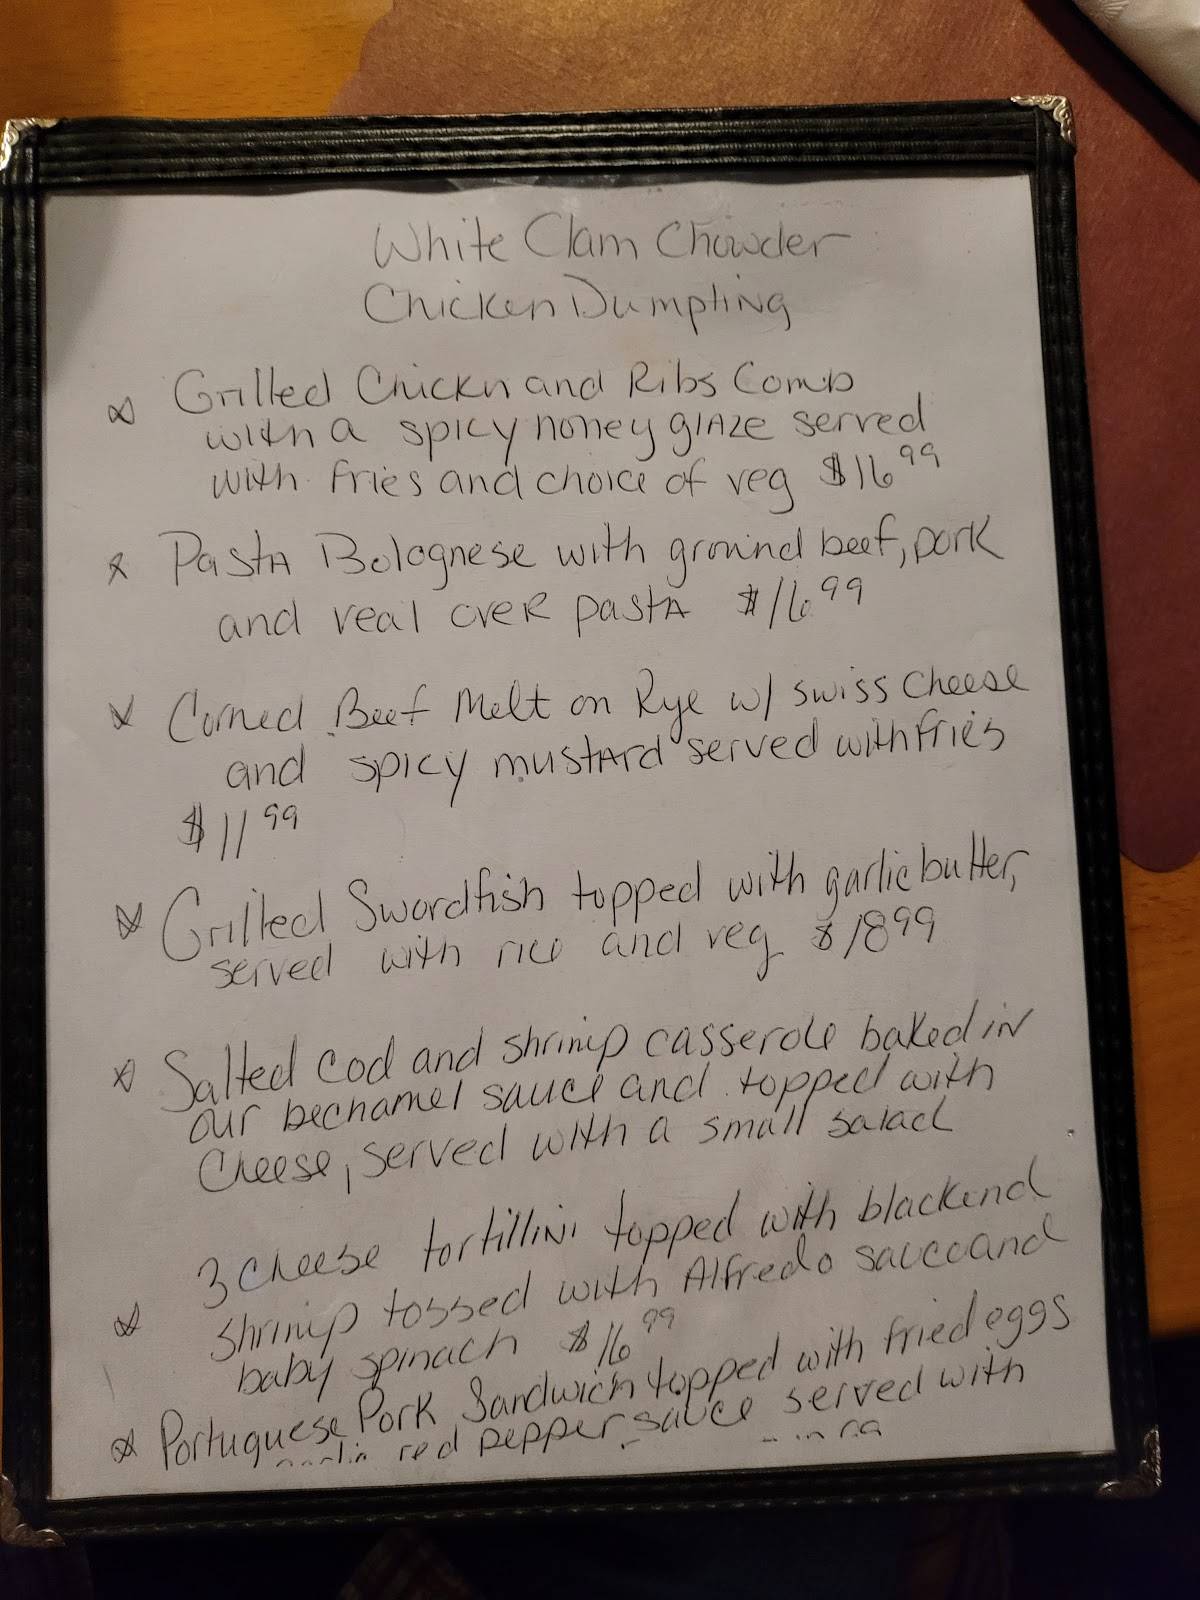 White Clam Chowder
Chicken Dumpling
Grilled Chickn and Ribs Comb
with a spicy honey glaze served
with fries and choice of veg $16.99
Pasta Bolognese with ground beef, pork
and veal over pasta $16.99
Corned Beef Melt on Rye w/ swiss cheese
and spicy mustard served with fries
$11.99
Grilled Swordfish topped with garlic butter,
served with rice and veg $18.99
Salted Cod and shrimp casserole baked in
our bechamel sauce and topped with
Cheese, served with a small salad
3 cheese tortillini topped with blackend
shrimp tossed with Alfredo sauce and
baby spinach $16.99
Portuguese Pork Sandwich topped with fried eggs
red pepper sauce served with